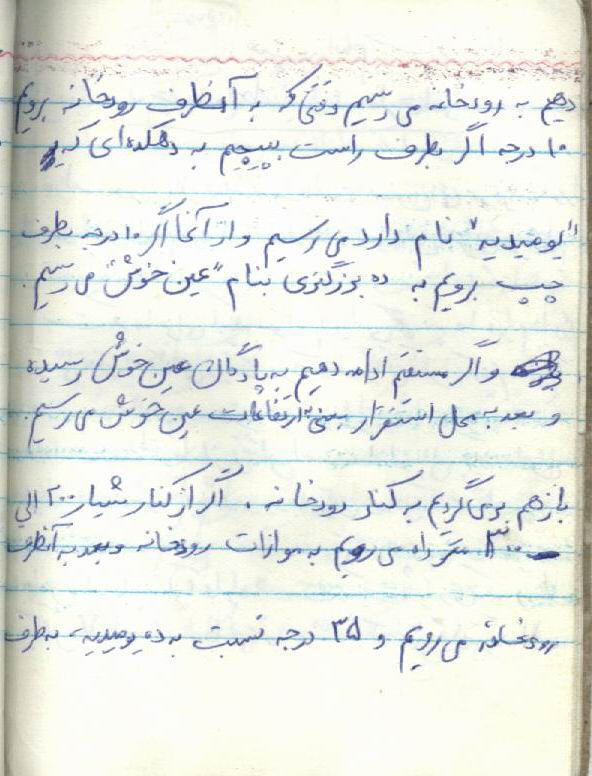 دهیم به رودخانه می رسیم وقتی که به آنطرف رودخانه برویم
۱۰ درجه اگر بطرف راست بپیچیم به دهکده‌ای که
"یومیدیه" نام دارد می رسیم و از آنجا اگر ۱۰ درجه بطرف
چپ برویم به ده بزرگتری بنام "عین خوش" می رسیم.
و اگر مستقیم ادامه دهیم به پادگان عین خوش رسیده
و بعد به محل استقرار یعنی ارتفاعات عین خوش می رسیم.
باز هم برمی گردیم به کنار رودخانه . اگر از کنار شیار ۲۰۰ الی
۳۰۰ متر راه می رویم به موازات رودخانه و بعد به آنطرف
رودخانه می رویم و ۳۵ درجه نسبت به ده یومیدیه، به طرف